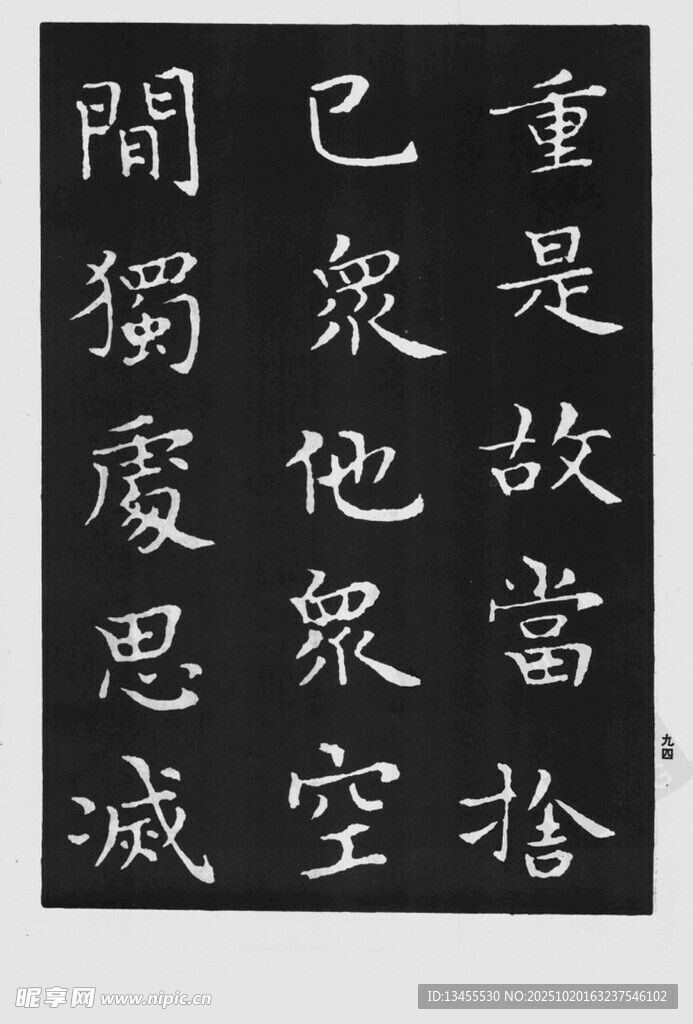 重是故當捨
已眾他眾空
間獨處思滅
九四
昵享网 www.nipic.cn
ID:13455530 NO:20251020163237546102